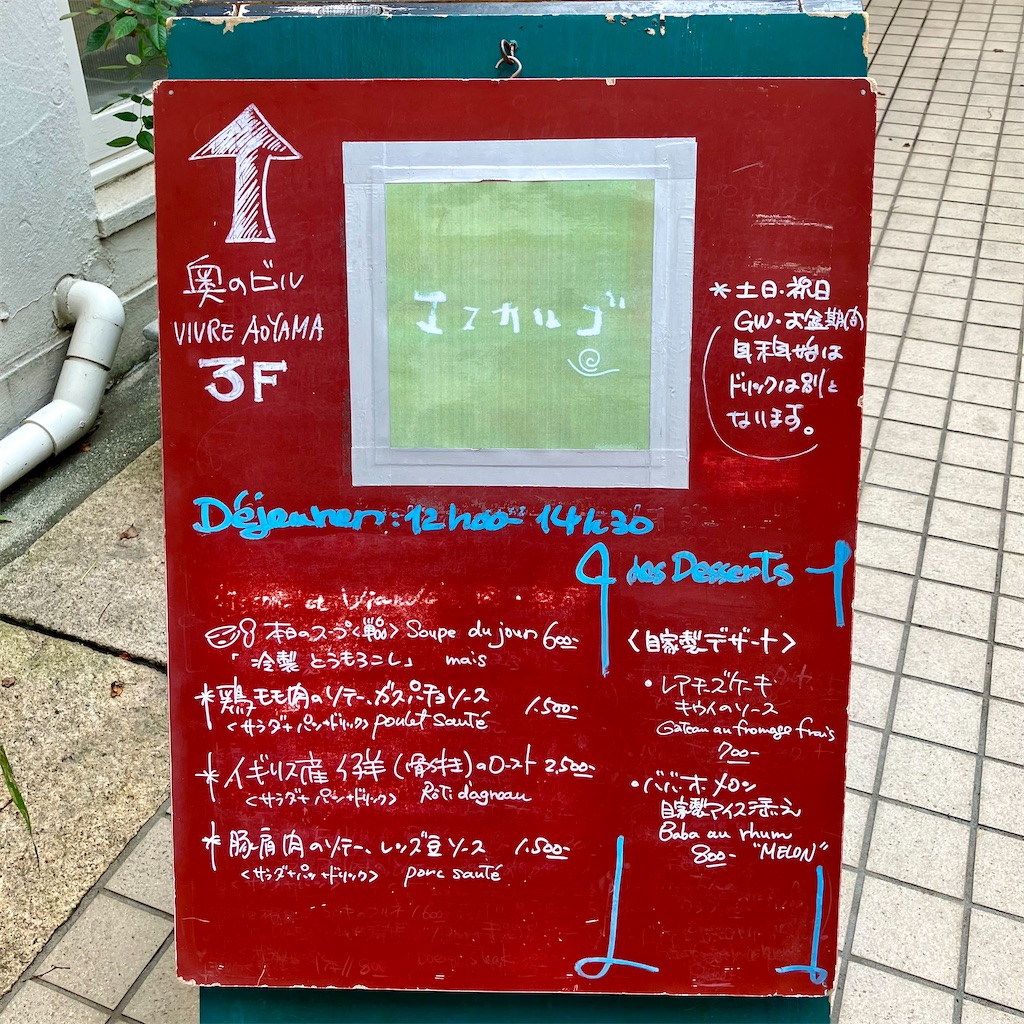 奥のビル
VIVRE AOYAMA
3F
エスカルゴ
*土日・祝日
GW・お盆期間
年末年始は
ドリンクは別と
なります。
Déjeuner: 12h00- 14h30
des Desserts
本日のスープ〈単品〉 Soupe du jour 600-
「冷製 とうもろこし」 maïs
*鶏モモ肉のソテー、ガスパチョソース 1.500-
<サラダ+パン+ドリンク> poulet sauté
*イギリス産 仔羊(骨付き)のロースト 2,500-
<サラダ+パン+ドリンク> Rôti d'agneau
*豚肩肉のソテー、レンズ豆ソース 1.500-
<サラダ+パン+ドリンク> porc sauté
〈自家製デザート〉
・レアチーズケーキ
キウイのソース
Gâteau au fromage frais
700-
・ババ・オ・メロン
自家製アイス添え
Baba au rhum
800- "MELON"